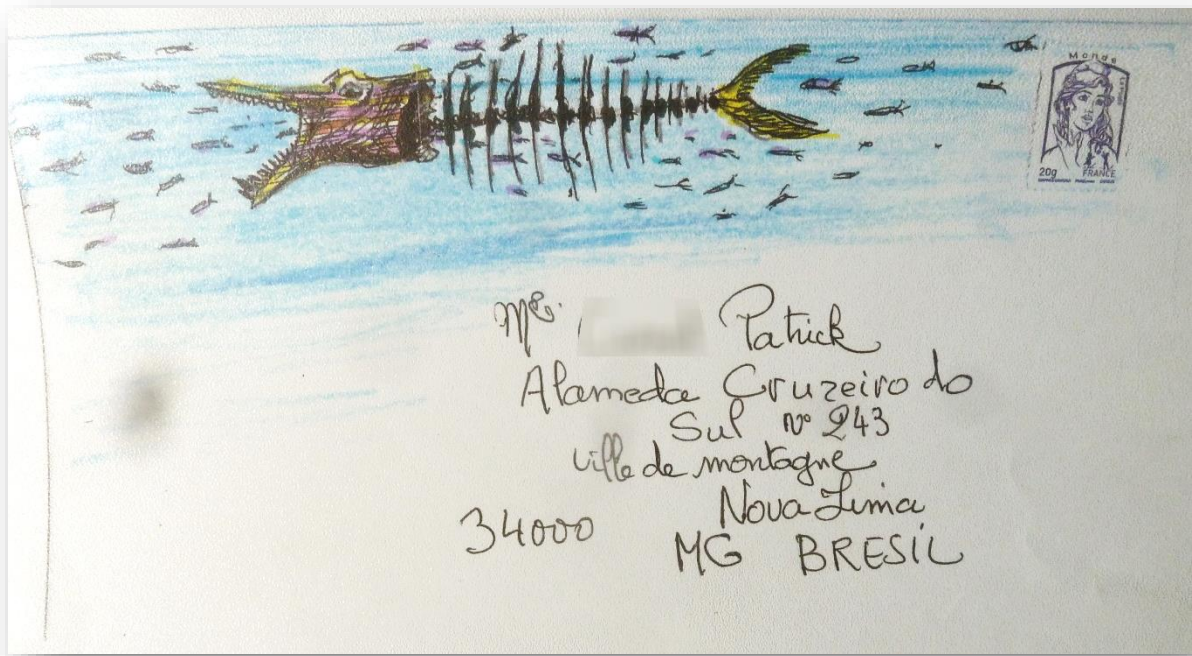 Monde
20g FRANCE
Mr. Patrick
Alameda Cruzeiro do
Sul nº 243
ville de montagne
Nova Lima
34000 MG BRESIL